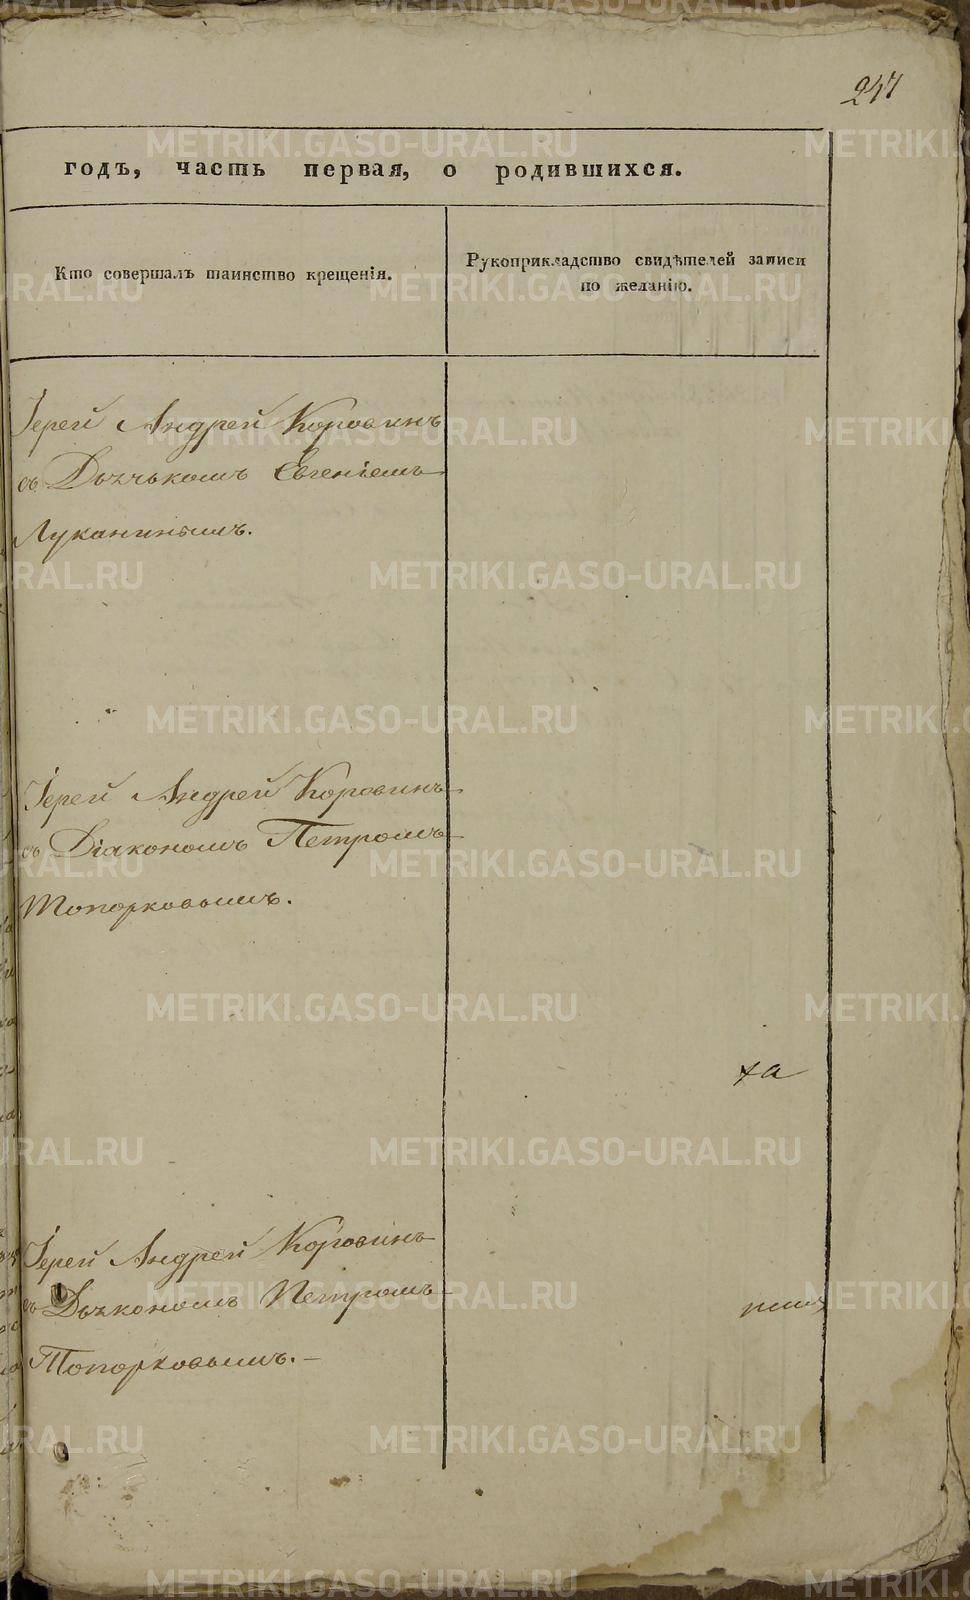 247
годъ, часть первая, о родившихся.
Кто совершалъ таинство крещенія.
Рукоприкладство свидѣтелей записи
по желанію.
Іерей Андрей Коровинъ
съ Дьячькомъ Евгеніемъ
Луканинымъ.
Іерей Андрей Коровинъ
съ Діакономъ Петромъ
Топорковымъ.
ха
Іерей Андрей Коровинъ
съ Дьякономъ Петромъ
Топорковымъ.
METRIKI.GASO-URAL.RU